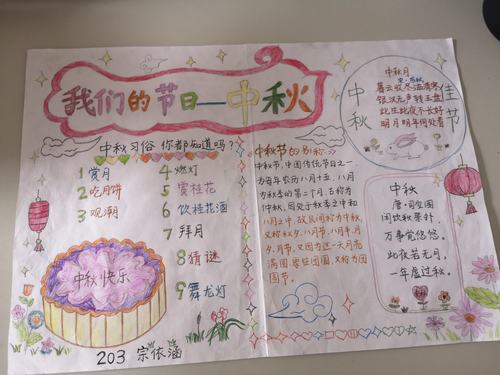 我们的节日—中秋
中秋习俗 你都知道吗?
1 赏月
2 吃月饼
3 观潮
4 燃灯
5 赏桂花
6 饮桂花酒
7 拜月
8 猜谜
9 舞龙灯
中秋快乐
203 宗依涵
中秋节的别称...
中秋节,中国传统节日之一,
为每年农历八月十五,八月
为秋季的第二个月,古称为
仲秋,因处于秋季之中和
八月之中,故民间称为中秋,
又称秋夕、八月节、八月半、月
夕、月节,又因为这一天月亮
满圆,象征团圆,又称为团
圆节。
中秋
佳节
中秋月
宋·苏轼
暮云收尽溢清寒
银汉无声转玉盘
此生此夜不长好
明月明年何处看
中秋
唐·司空图
闲吟秋景外,
万事觉悠悠。
此夜若无月,
一年虚过秋。